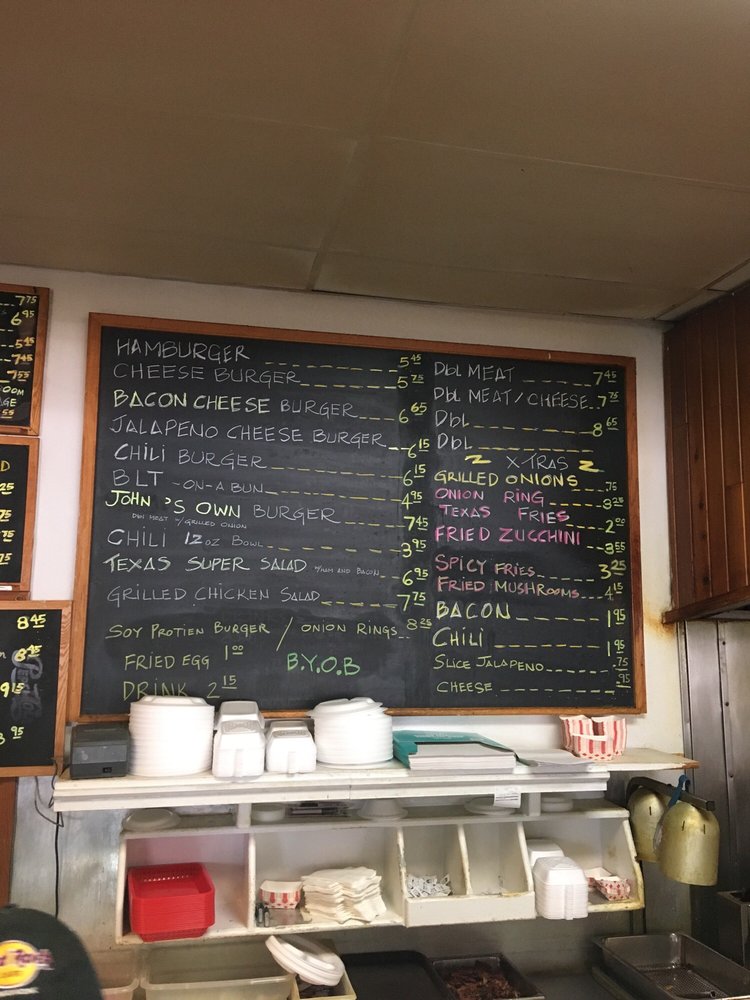 7 75
6 95
5 45
7 45
7 55
OOM
GE
55
D
25
75
75
8 45
8 45
9 15
95
HAMBURGER 5 45
CHEESE BURGER 5 75
BACON CHEESE BURGER 6 65
JALAPENO CHEESE BURGER 6 15
CHILI BURGER 6 15
BLT -ON-A BUN 4 95
JOHN'S OWN BURGER 7 45
DBL MEAT W/GRILLED ONION
CHILI 12oz BOWL 3 95
TEXAS SUPER SALAD W/HAM AND BACON 6 95
GRILLED CHICKEN SALAD 7 75
SOY PROTIEN BURGER / ONION RINGS 8 25
FRIED EGG 1 00
B.Y.O.B
DRINK 2 15
DbL MEAT 7 45
DbL MEAT/CHEESE 7 75
DbL 8 65
DbL
X-TRAS
GRILLED ONIONS .75
ONION RING 3 25
TEXAS FRIES 2 00
FRIED ZUCCHINI 3 55
SPICY FRIES 3 25
FRIED MUSHROOMS 4 15
BACON 1 95
CHILI 1 95
SLICE JALAPENO .75
CHEESE .95